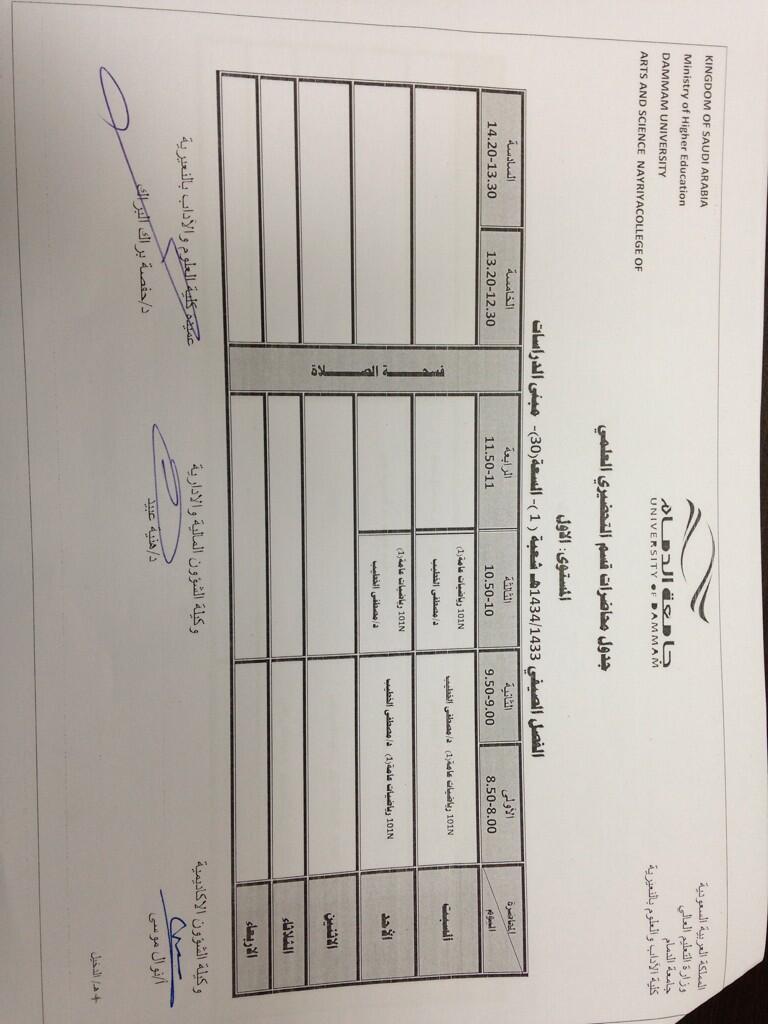 KINGDOM OF SAUDI ARABIA
Ministry of Higher Education
DAMMAM UNIVERSITY
ARTS AND SCIENCE NAYRIYACOLLEGE OF
جامعة الدمام
UNIVERSITY OF DAMMAM
المملكة العربية السعودية
وزارة التعليم العالي
جامعة الدمام
كلية الآداب والعلوم بالنعيرية
جدول محاضرات قسم التحضيري العلمي
المستوى: الاول
الفصل الصيفي 1434/1433هـ شعبة ( 1 )- السعة(30)- مبنى الدراسات
المحاضرة
اليوم
الأولى
8.50-8.00
الثانية
9.50-9.00
الثالثة
10.50-10
الرابعة
11.50-11
فسحة الصلاة
الخامسة
13.20-12.30
السادسة
14.20-13.30
السبت
101N رياضيات عامة(1) د/مصطفى الخطيب
101N رياضيات عامة(1)
د/مصطفى الخطيب
الأحد
101N رياضيات عامة(1) د/مصطفى الخطيب
101N رياضيات عامة(1)
د/مصطفى الخطيب
الاثنين
الثلاثاء
الاربعاء
وكيلة الشؤون الاكاديمية
أ/نوال موسى
وكيلة الشؤون المالية والادارية
د/هنية عبيد
عميدة كلية العلوم والآداب بالنعيرية
د/حفصة براك البراك
هـ/ الدخيل